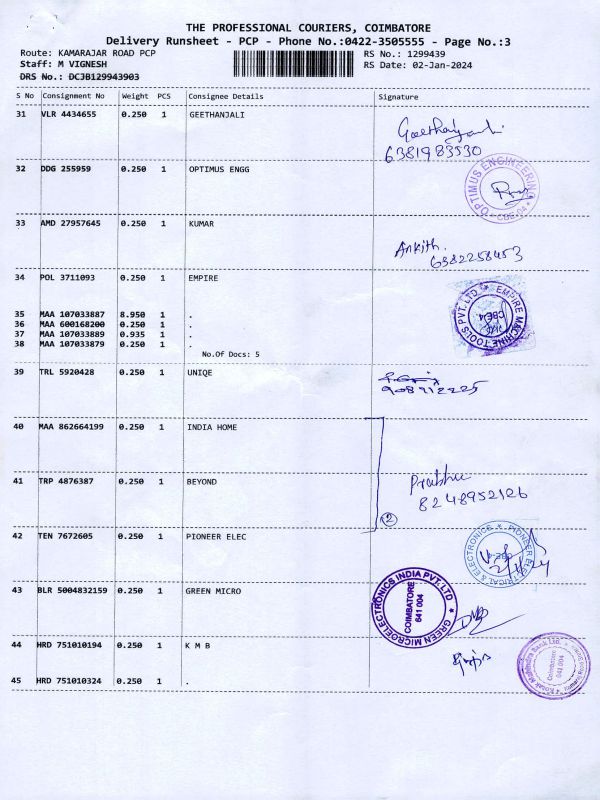 THE PROFESSIONAL COURIERS, COIMBATORE
Delivery Runsheet - PCP - Phone No.:0422-3505555 - Page No.:3
Route: KAMARAJAR ROAD PCP RS No.: 1299439
Staff: M VIGNESH RS Date: 02-Jan-2024
DRS No.: DCJB129943903
S No Consignment No Weight PCS Consignee Details Signature
31 VLR 4434655 0.250 1 GEETHANJALI
6381983530
32 DDG 255959 0.250 1 OPTIMUS ENGG
OPTIMUS ENGINEERING
CBE-04
33 AMD 27957645 0.250 1 KUMAR
Ankith.
6382258453
34 POL 3711093 0.250 1 EMPIRE
EMPIRE MACHINE TOOLS PVT. LTD.
CBE-4
35 MAA 107033887 8.950 1 .
36 MAA 600168200 0.250 1 .
37 MAA 107033889 0.935 1 .
38 MAA 107033879 0.250 1 .
No.Of Docs: 5
39 TRL 5920428 0.250 1 UNIQE
908912225
40 MAA 862664199 0.250 1 INDIA HOME
41 TRP 4876387 0.250 1 BEYOND
Prabhu
8248952126
2
42 TEN 7672605 0.250 1 PIONEER ELEC
PIONEER ELECTRICAL & ELECTRONICS
2/1/24
43 BLR 5004832159 0.250 1 GREEN MICRO
GREEN MICROELECTRONICS INDIA PVT. LTD
COIMBATORE
641 004
44 HRD 751010194 0.250 1 K M B
Kotak Mahindra Bank Ltd.
Coimbatore
641 004
45 HRD 751010324 0.250 1 .